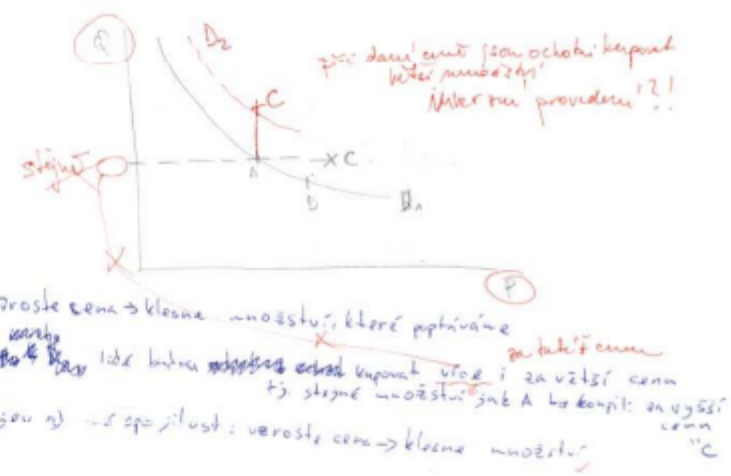 Q
D2
při dané ceně jsou ochotni kupovat
větší množství
provedení?!
C
stejně
A
C
D
D1
P
vzroste cena → klesne množství, které poptáváme
za tutéž cenu
lidé budou kupovat více i za větší cenu
tj. stejné množství jak A by koupili za vyšší
cenu
"C
: vzroste cena → klesne množství